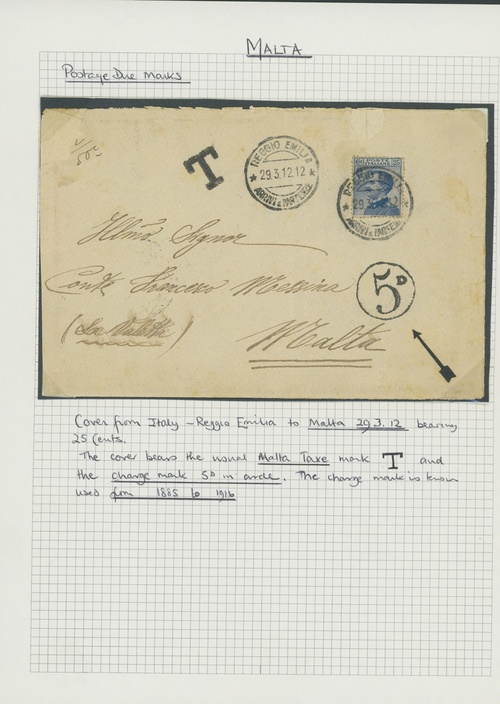 MALTA
Postage Due Marks
50c
T
REGGIO EMILIA
29.3.12.12
ARRIVI e PARTENZE
REGGIO EMILIA
29
12
ARRIVI e PARTENZE
Illmo Signor
Conte Francesco Messina
5D
(La Valletta)
Malta
Cover from Italy - Reggio Emilia to Malta 29.3.12 bearing
25 Cents.
The cover bears the usual Malta Taxe mark T and
the charge mark 5D in circle. The charge mark is known
used from 1885 to 1916